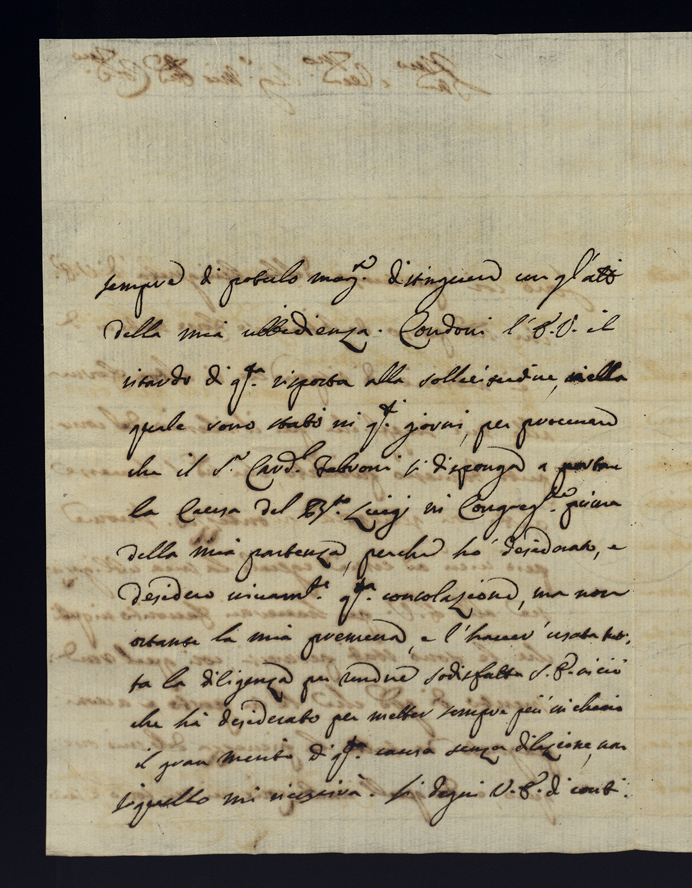 sempre di poterlo mag.te distinguere con gl'atti
della mia ubbidienza. Condoni l'E.V. il
ritardo di q.ta risposta alla sollecitudine, nella
quale sono stato in q.ti giorni, per procurare
che il S.r Card.l Fabroni si disponga a portare
la Causa del B. Luigi in Congreg.ne prima
della mia partenza, perche hò desiderato, e
desidero vivam.te q.ta consolazione, ma non
ostante la mia premura, e l'haver usata tut,
ta la diligenza per rendere sodisfatta S.E. in ciò
che hà desiderato per metter sempre più in chiaro
il gran merito di q.ta causa senza dilazione, non
sò quello mi riuscirà. Si degni V.E. di conti-